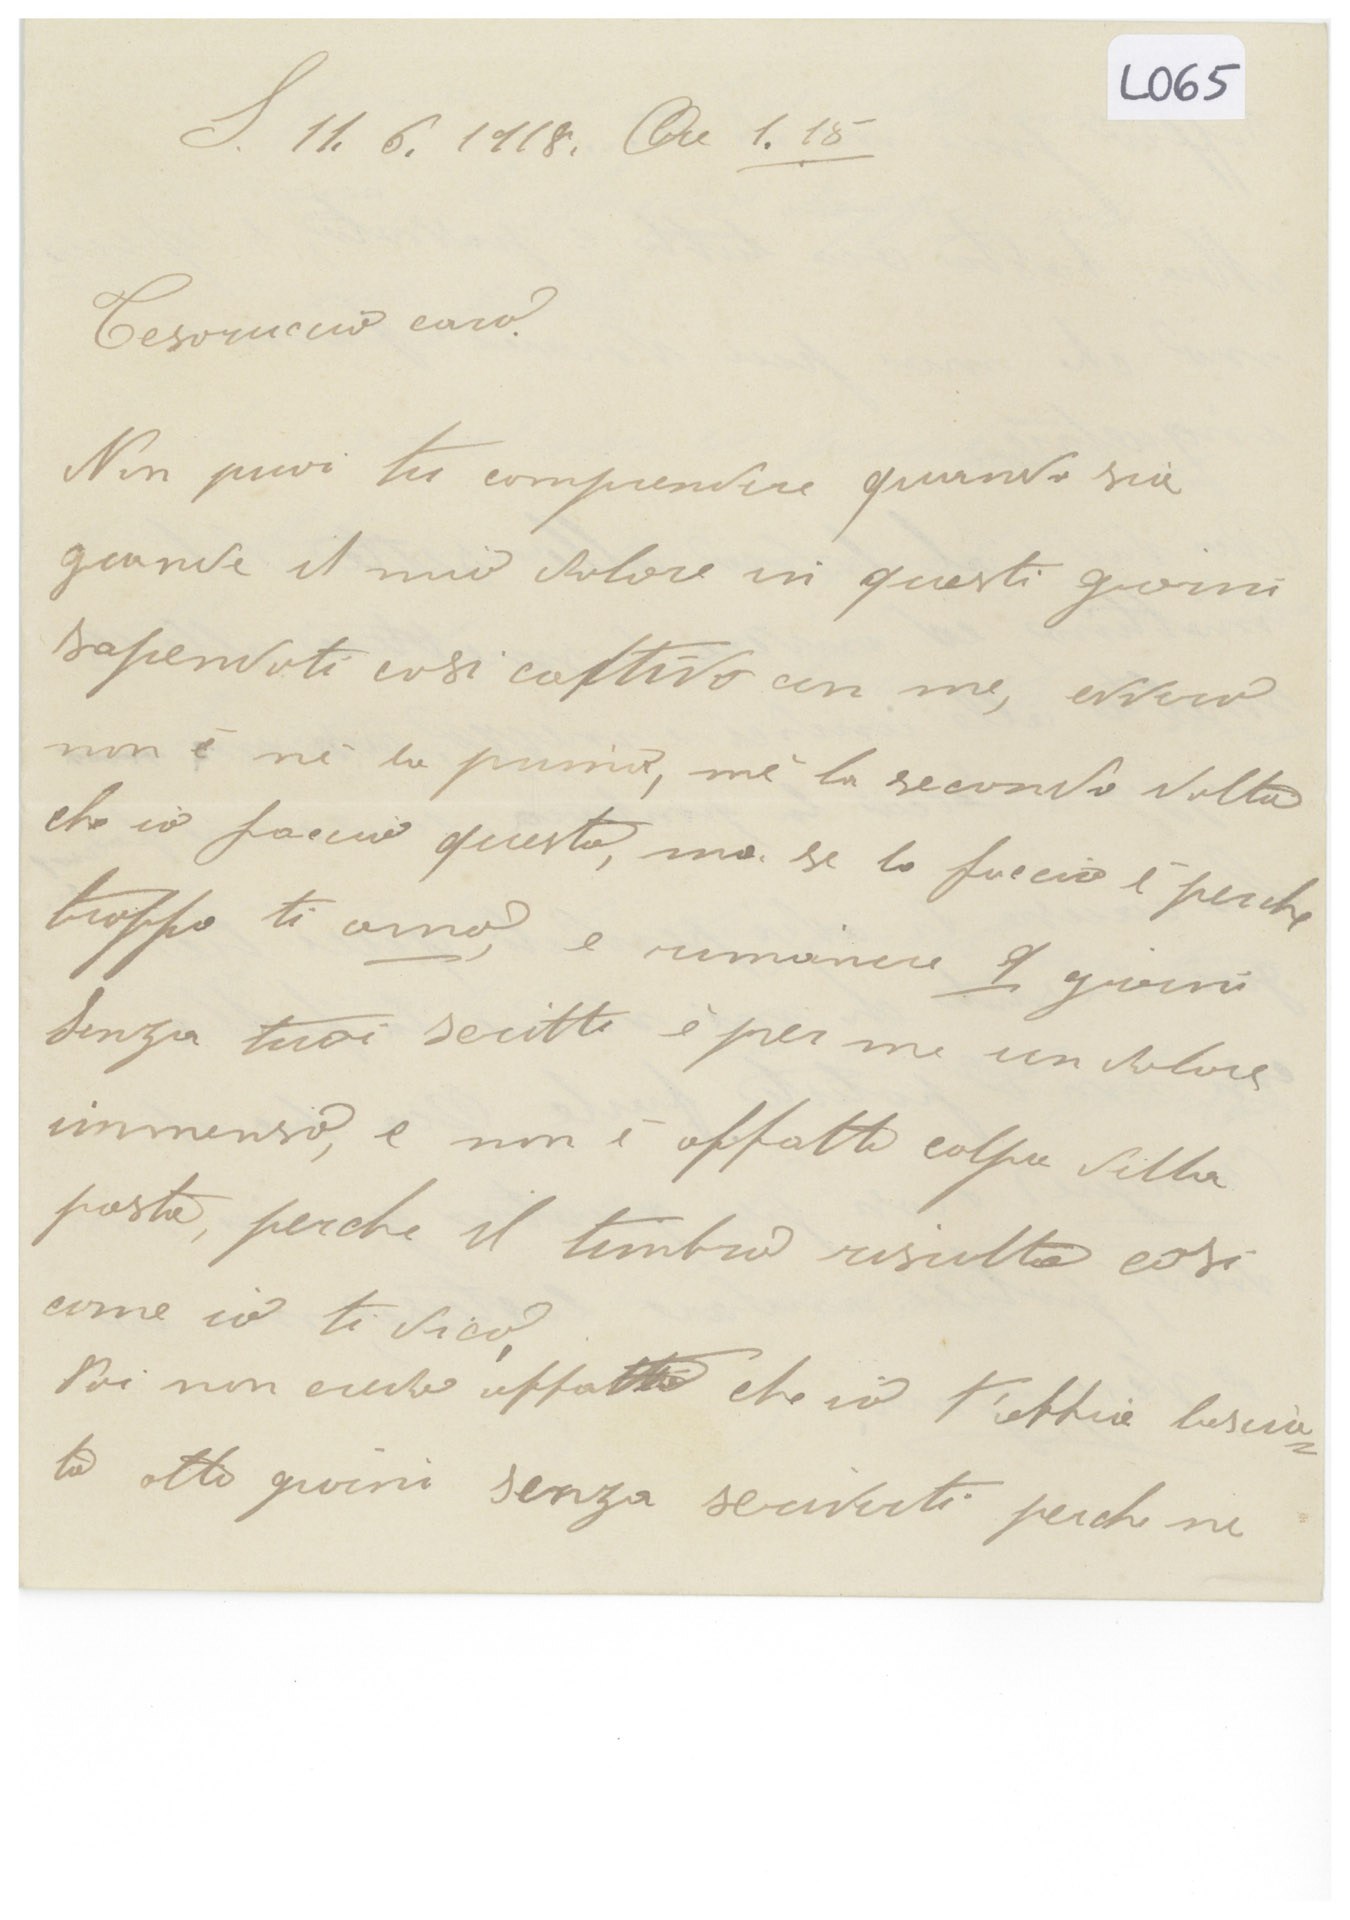 L065
S. 11. 6. 1918. Ore 1. 15
Tesoruccio caro.
Non puoi tu comprendere quando sia
grande il mio dolore in questi giorni
sapendoti cosi cattivo con me, ovvero
non è nè la prima, nè la seconda volta
che io faccio questo, ma se lo faccio è perche
troppo ti amo, e rimanere 9 giorni
senza tuoi scritti è per me un dolore
immenso, e non è affatto colpa della
posta, perche il timbro risulta cosi
come io ti dico,
Poi non credo affatto che io t'abbia lascia=
to otto giorni senza scriverti perche ne